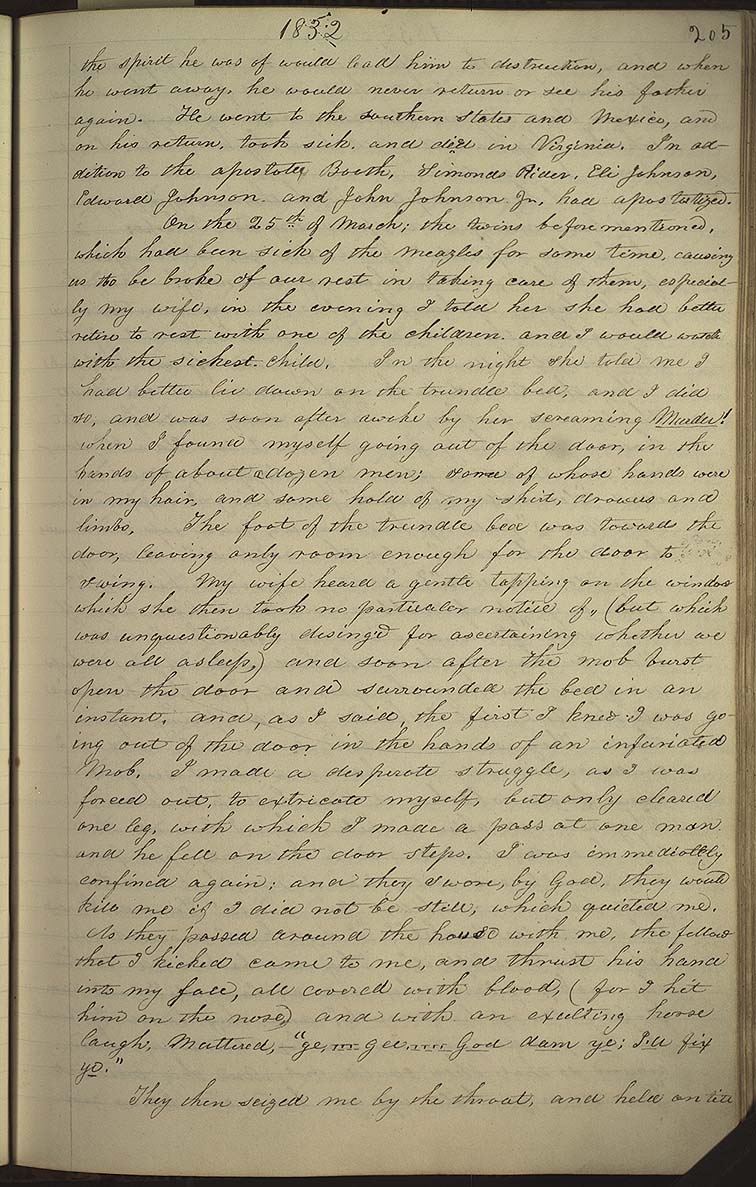 1832
205
the spirit he was of would lead him to distruction, and when
he went away, he would never return or see his father
again. He went to the southern States and Mexico, and
on his return, took sick, and died in Virginia. In ad-
dition to the apostate Booth, Simonds Rider, Eli Johnson,
Edward Johnson. and John Johnson Jr, had apostatized.
On the 25th of March; the twins before mentioned,
which had been sick of the meazles for some time, causing
us to be broke of our rest in taking care of them, especial-
ly my wife, in the evening I told her she had better
retire to rest with one of the children. and I would watch
with the sickest child. In the night she told me I
had better lie down on the trundle bed, and I did
so, and was soon after awoke by her screaming Murder!
when I found myself going out of the door, in the
hands of about a dozen men; some of whose hands were
in my hair, and some hold of my shirt, drawers and
limbs, The foot of the trundle bed was towards the
door, leaving only room enough for the door to
swing. My wife heard a gentle tapping on the windows
which she then took no particular notice of, (but which
was unquestionably desing'd for ascertaining whether we
were all asleep,) and soon after the mob burst
open the door and surrounded the bed in an
instant, and, as I said, the first I knew I was go-
ing out of the door in the hands of an infuriated
Mob. I made a desperate struggle, as I was
forced out, to extricate myself, but only cleared
one leg, with which I made a pass at one man
and he fell on the door steps. I was immediately
confined again; and they swore, by God, they would
kill me if I did not be still, which quieted me.
As they passed around the house with me, the fellow
that I kicked came to me, and thrust his hand
into my face, all covered with blood, (for I hit
him on the nose,) and with an exulting horse
laugh, Muttered, "ge, gee, God dam ye; I'll fix
ye."
They then seized me by the throat, and held on till